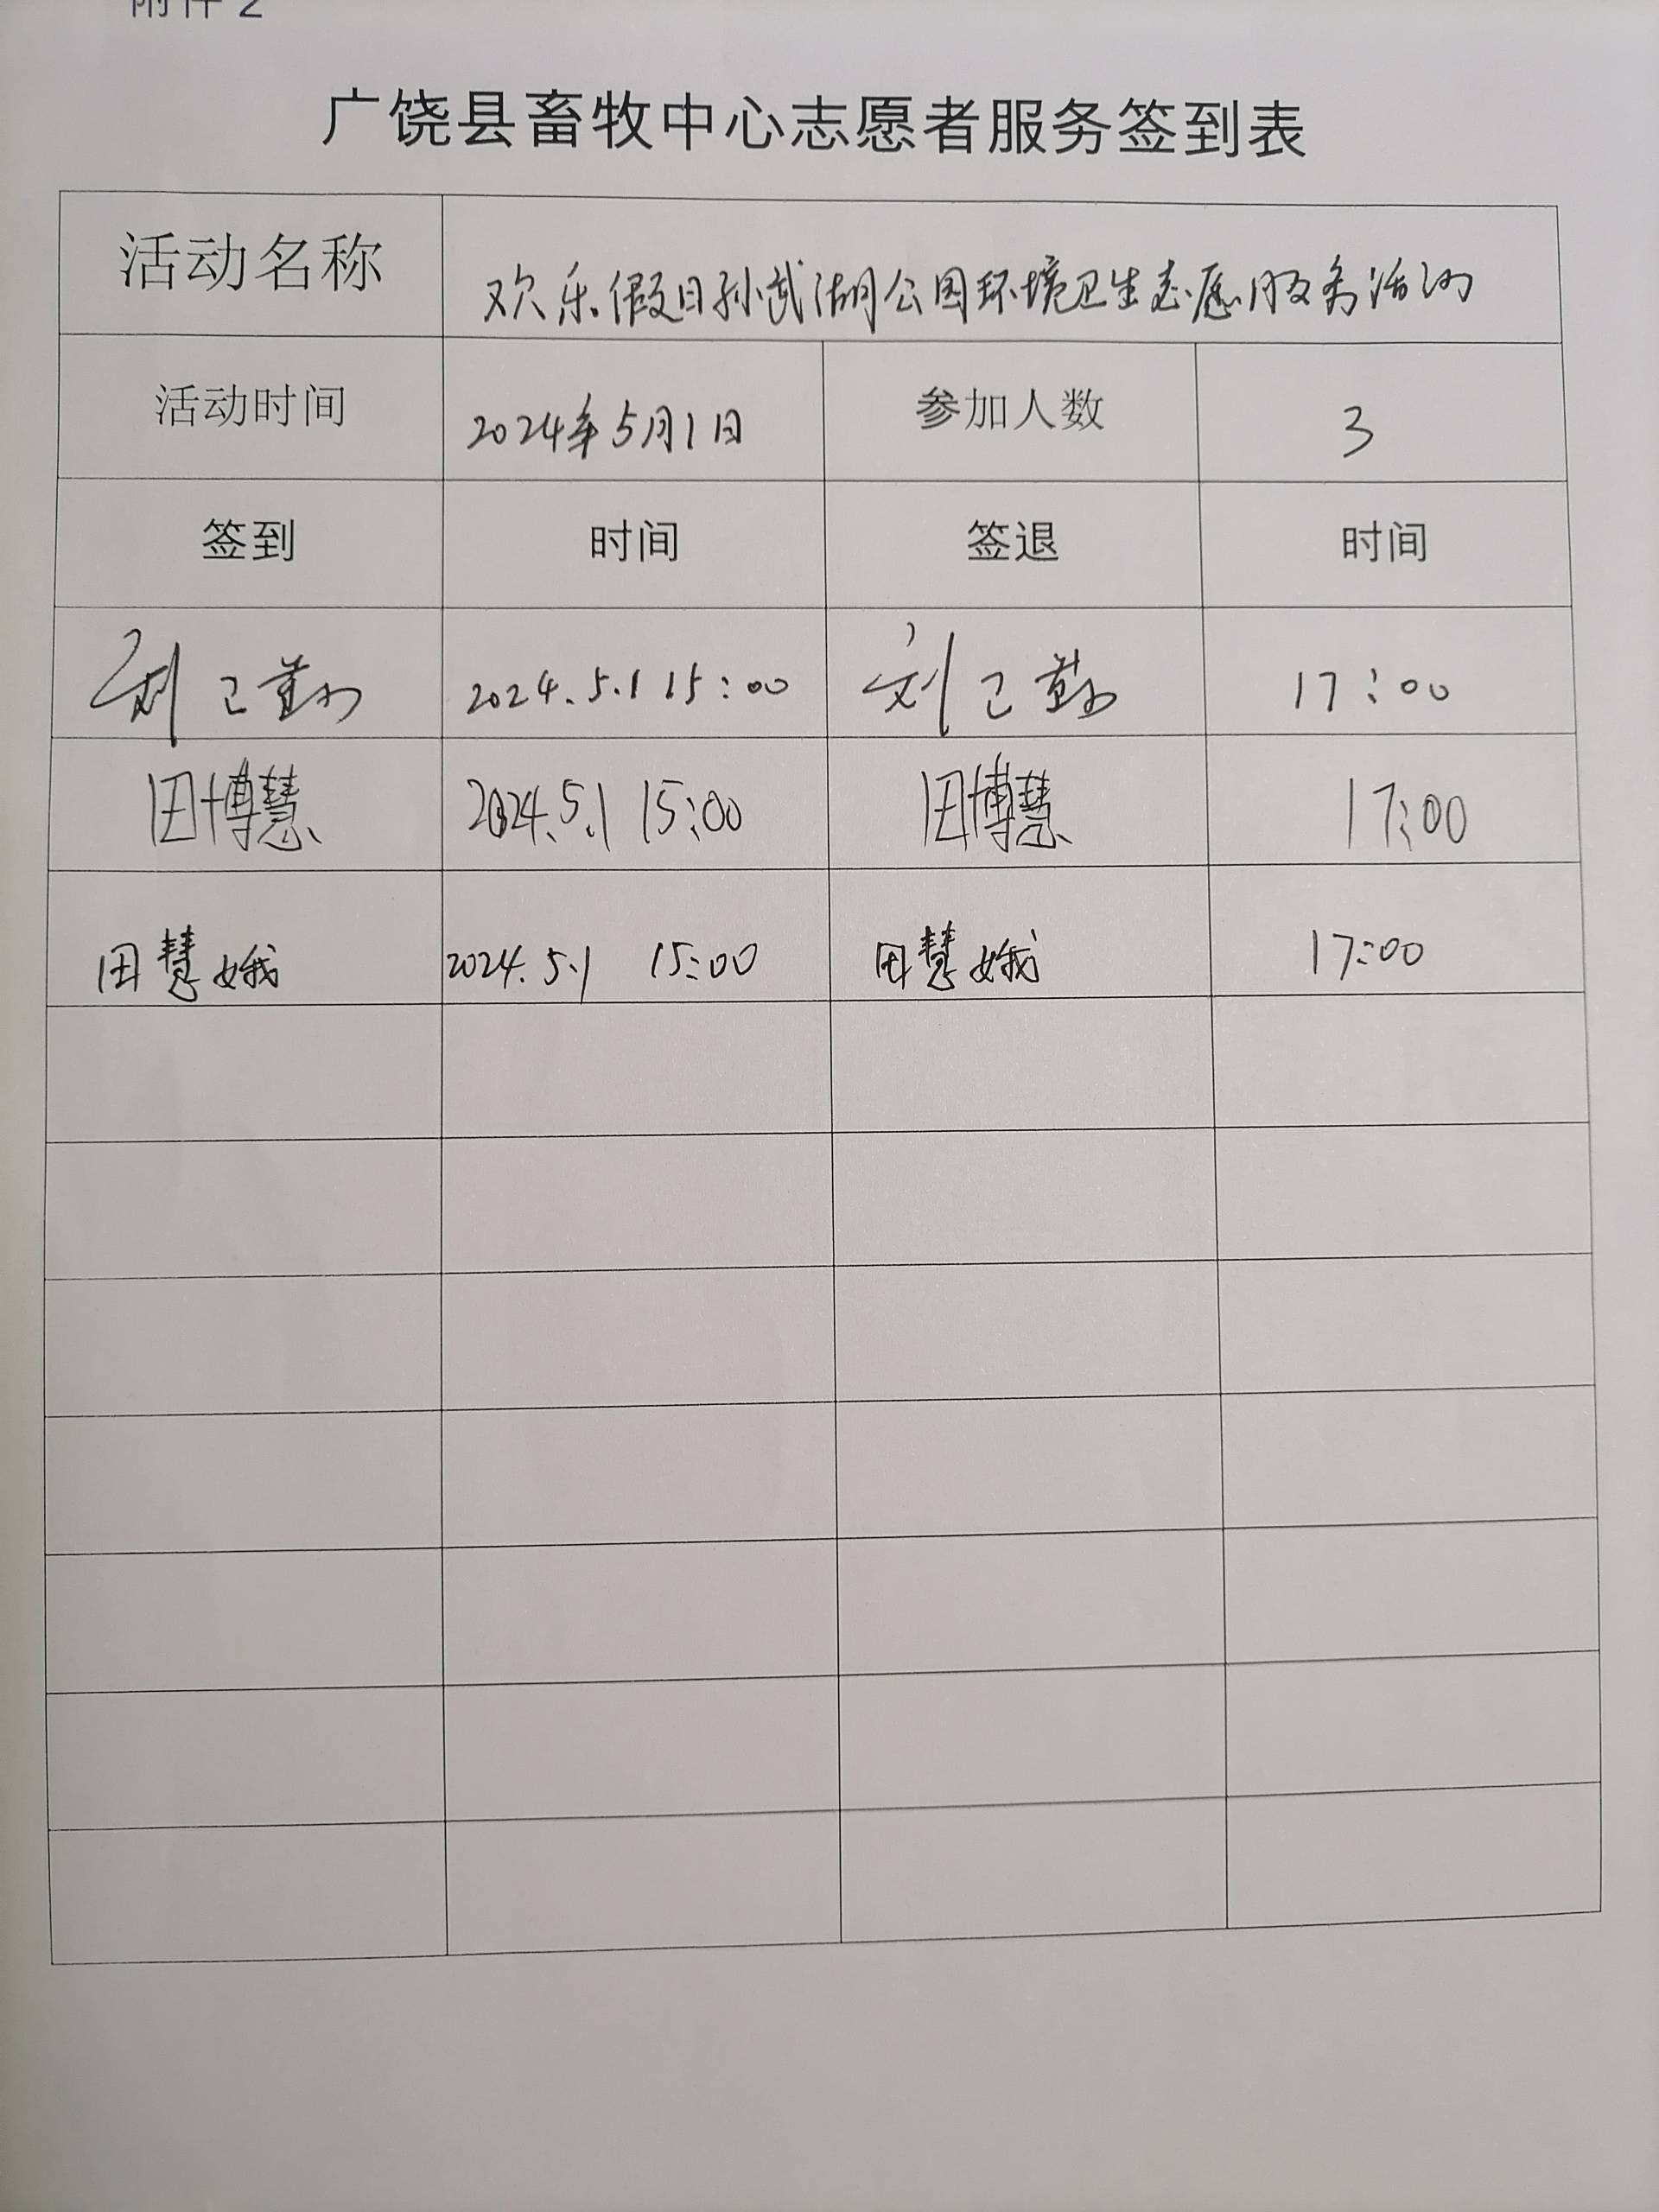 附件 2
广饶县畜牧中心志愿者服务签到表
活动名称 欢乐假日孙武湖公园环境卫生志愿服务活动
活动时间 2024年5月1日 参加人数 3
签到 时间 签退 时间
刘己勤 2024.5.1 15:00 刘己勤 17:00
田博慧 2024.5.1 15:00 田博慧 17:00
田慧娥 2024.5.1 15:00 田慧娥 17:00